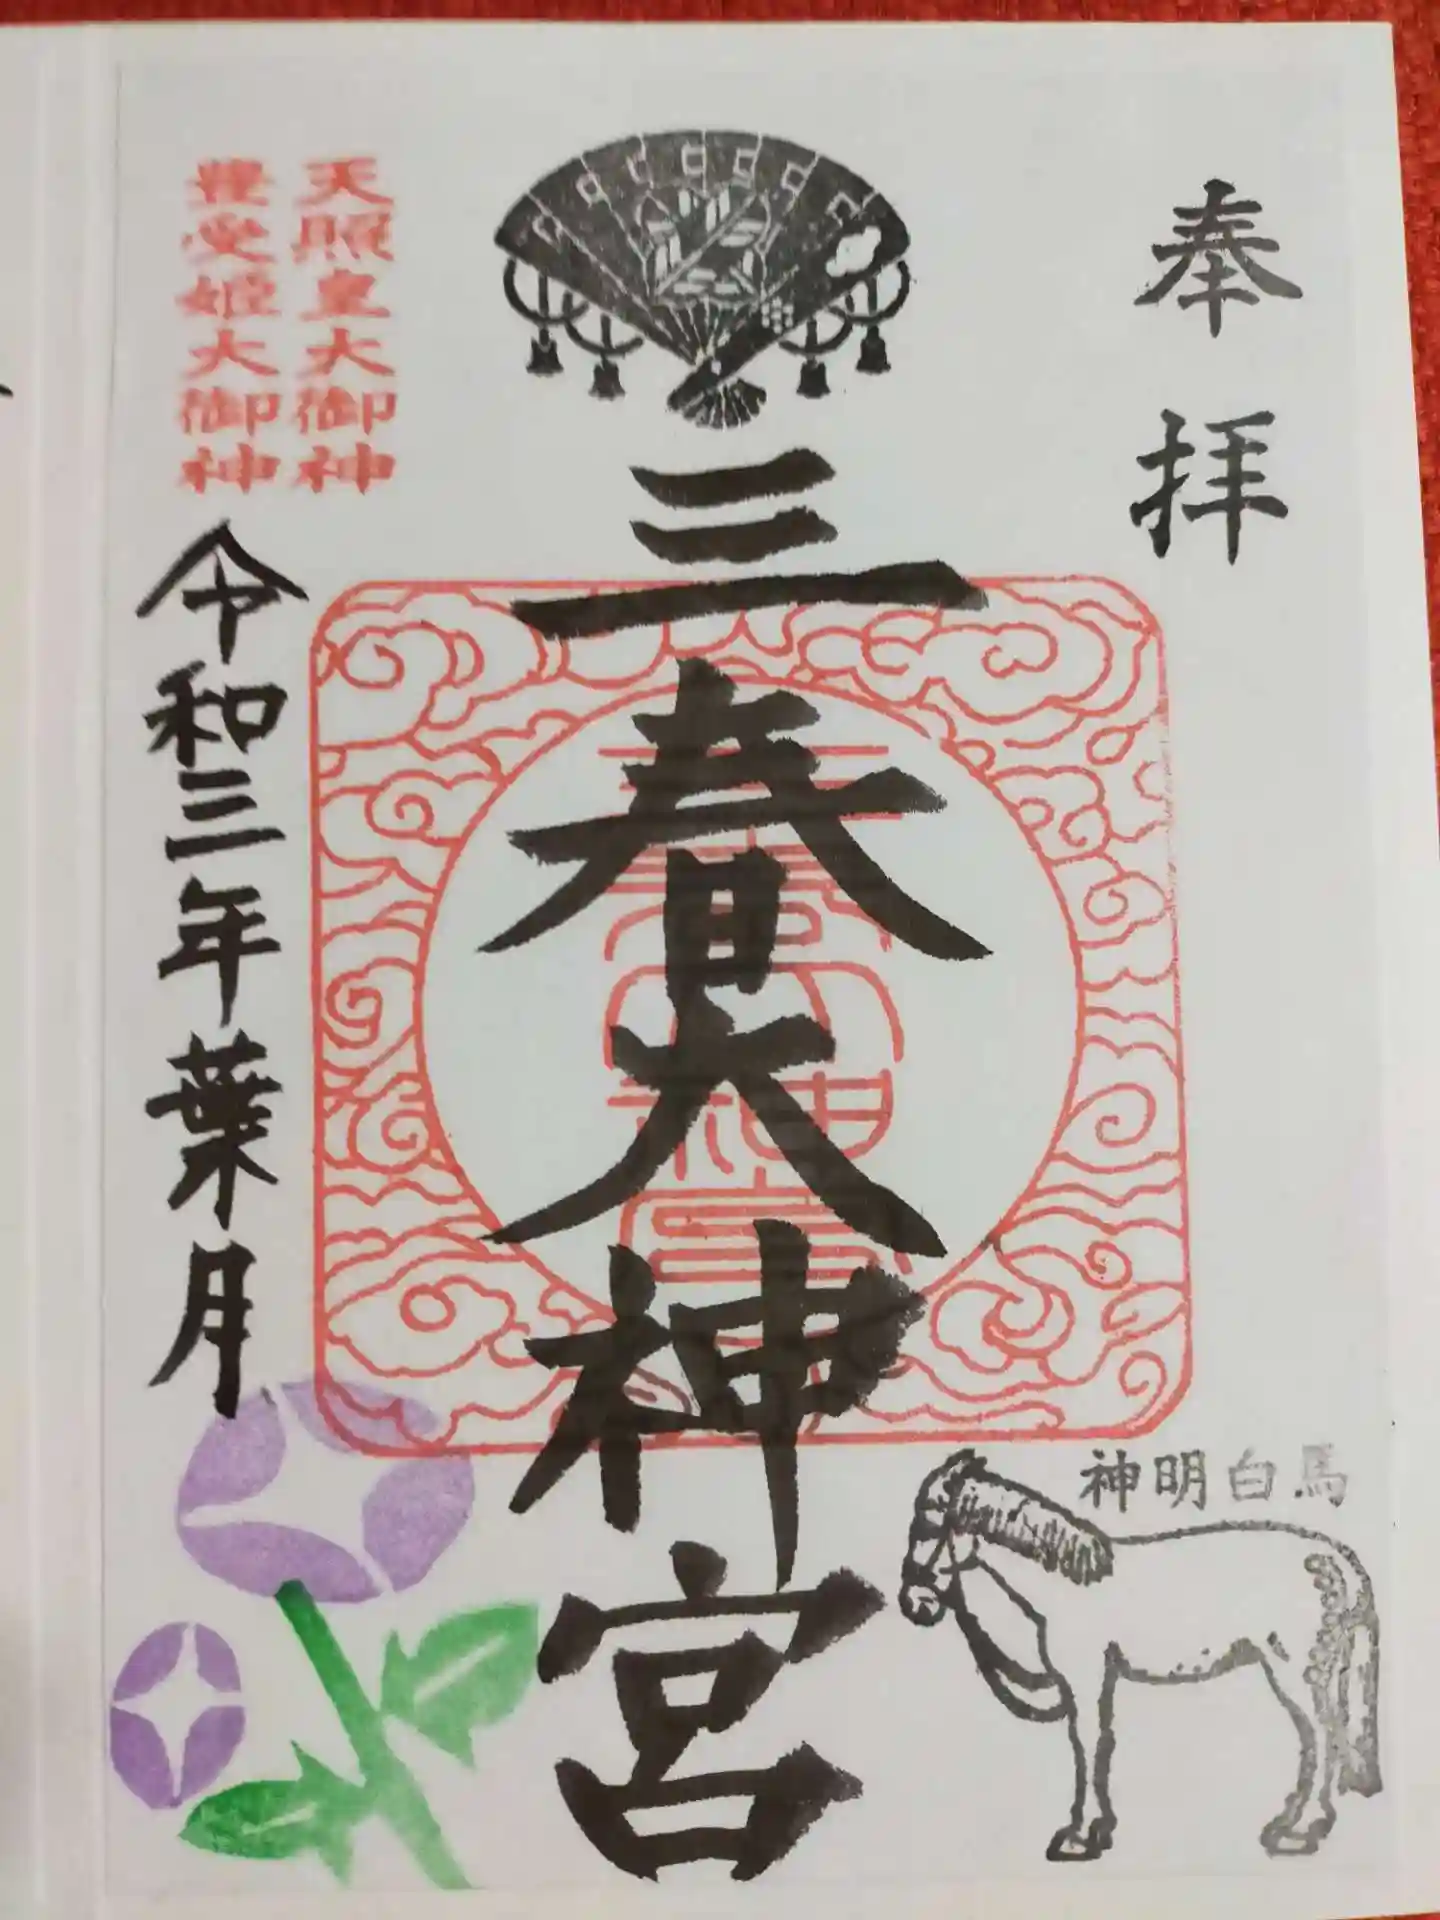 奉拝
三春大神宮
天照皇大御神
豊受姫大御神
令和三年葉月
神明白馬